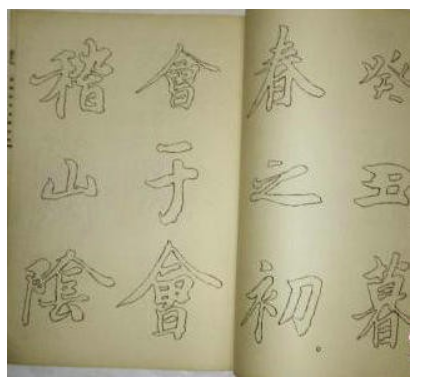 癸丑暮
春之初。
會于會
稽山陰